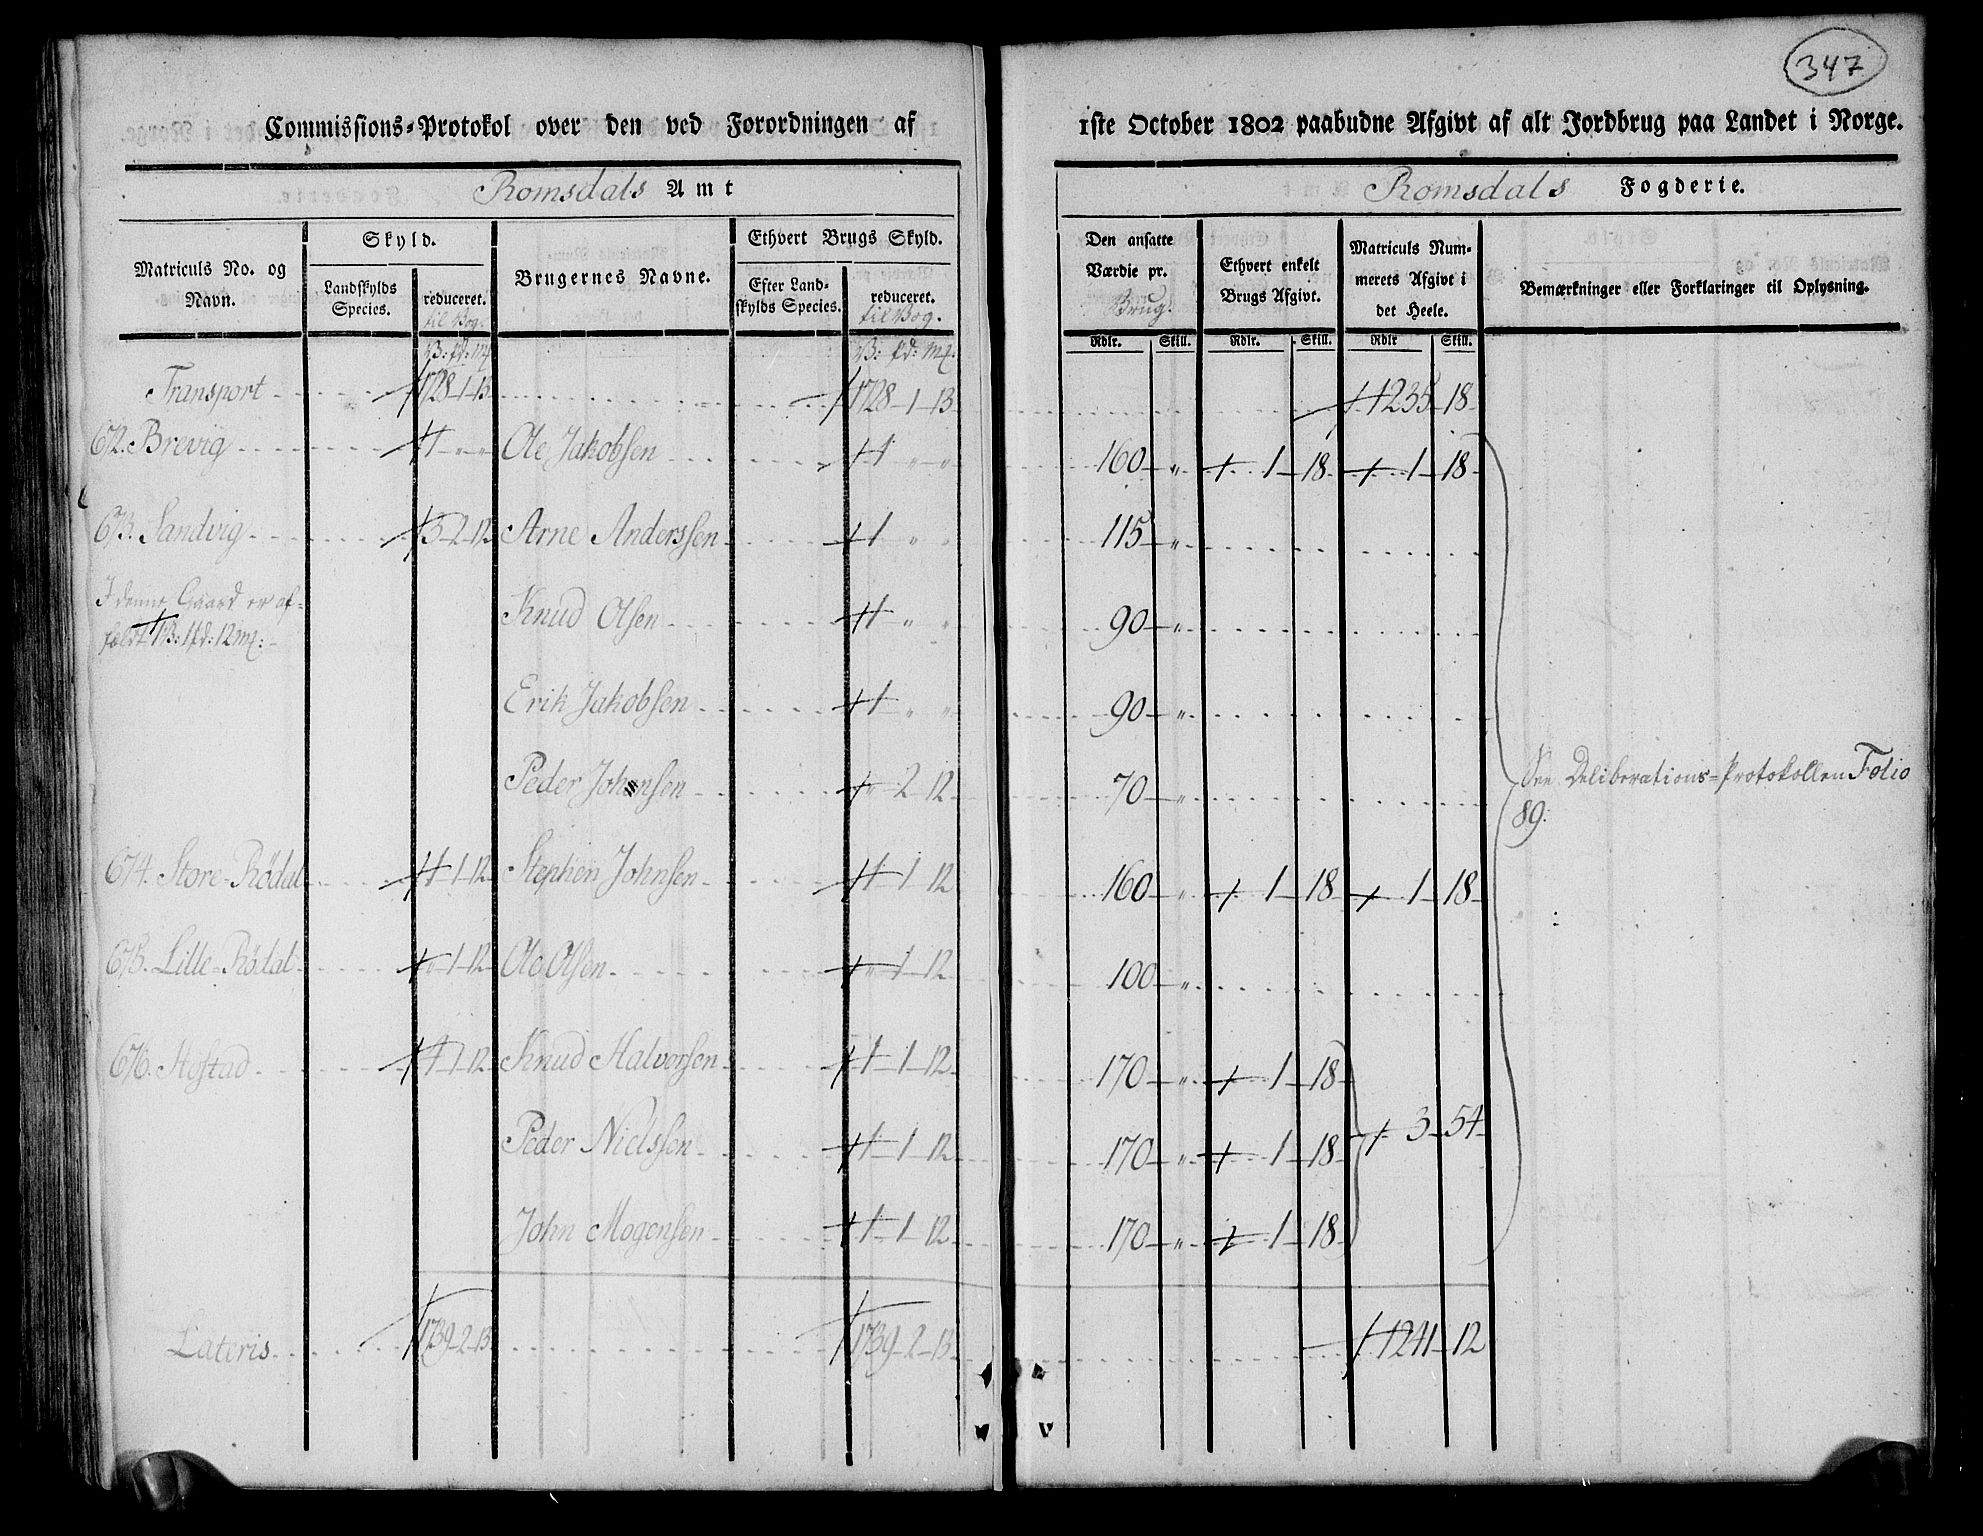 347
Commissions-Protokol over den ved Forordningen af 1ste October 1802 paabudne Afgivt af alt Jordbrug paa Landet i Norge.
Romsdals Amt Romsdals Fogderie.
Matriculs No. og Navn.
Skyld.
Landskylds Species.
reduceret.
til Vog.
Brugernes Navne.
Ethvert Brugs Skyld.
Efter Landskylds Species.
reduceret.
til Vog.
Den ansatte Værdie pr. Brug.
Ethvert enkelt Brugs Afgivt.
Matriculs Nummerets Afgivt i det Heele.
Bemærkninger eller Forklaringer til Oplysning.
V: pd: M. V: pd: M. Rdlr. Skill. Rdlr. Skill. Rdlr Skill.
Transport 1728-1-13 1728-1-13 1235-18
672. Brevig 1 " " Ole Jakobsen 1 " " 160 " 1-18 1-18
673. Sandvig 3-2-12 Arne Anderssen 1 " " 115 "
I denne Gaard er af- Knud Olsen 1 " " 90 "
fældt 1V: 1pd: 12M:
Erik Jakobsen 1 " " 90 "
Peder Johnsen " 2 12 70 "
See Deliberations-Protokollen Folio
89.
674. Store-Rödal 1-1-12 Stephen Johnsen 1-1-12 160 " 1-18 1-18
675. Lille-Rödal "-1-12 Ole Olsen "-1-12 100 "
676. Hostad 4-1-12 Knud Halvorsen 1-1-12 170 " 1-18
Peder Nielssen 1-1-12 170 " 1-18 3-54
John Mogensen 1-1-12 170 " 1-18
Lateris 1739-2-13 1739-2-13 1241-12